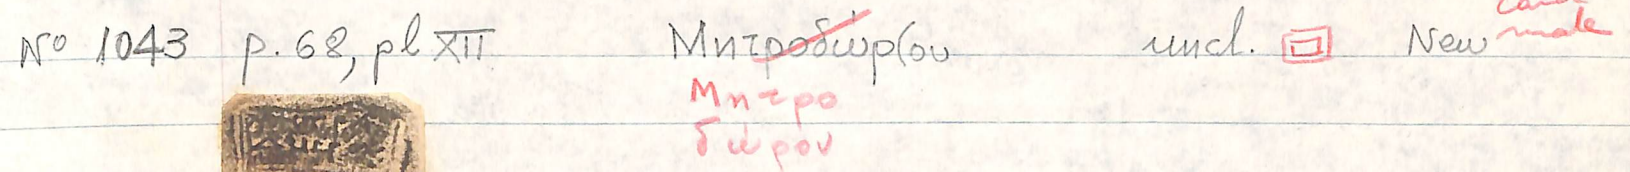 card
No 1043 p. 68, pl XII Μητροδώρ(ου uncl. New made
Μητρο
δώρου